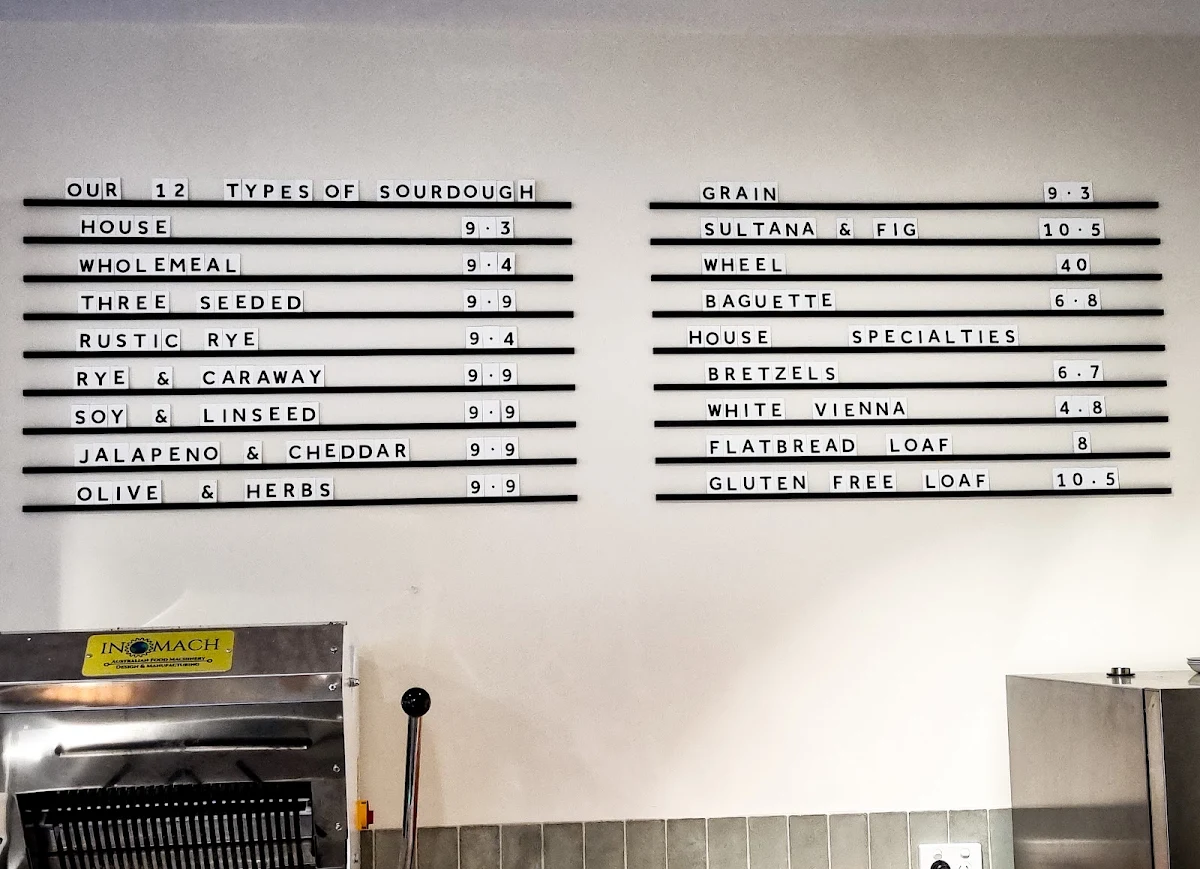 OUR 12 TYPES OF SOURDOUGH
HOUSE 9.3
WHOLEMEAL 9.4
THREE SEEDED 9.9
RUSTIC RYE 9.4
RYE & CARAWAY 9.9
SOY & LINSEED 9.9
JALAPENO & CHEDDAR 9.9
OLIVE & HERBS 9.9
GRAIN 9.3
SULTANA & FIG 10.5
WHEEL 40
BAGUETTE 6.8
HOUSE SPECIALTIES
BRETZELS 6.7
WHITE VIENNA 4.8
FLATBREAD LOAF 8
GLUTEN FREE LOAF 10.5
INOMACH
AUSTRALIAN FOOD MACHINERY
DESIGN & MANUFACTURING